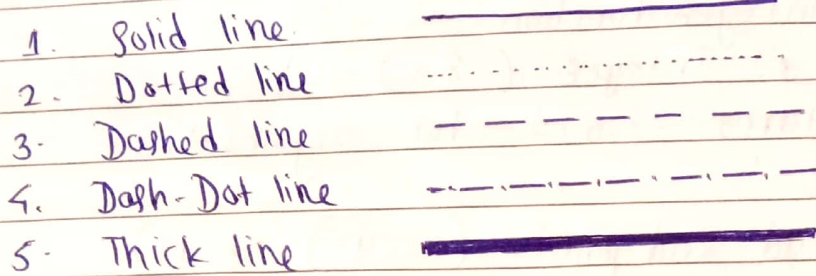 1. Solid line
2. Dotted line
3. Dashed line
4. Dash-Dot line
5. Thick line